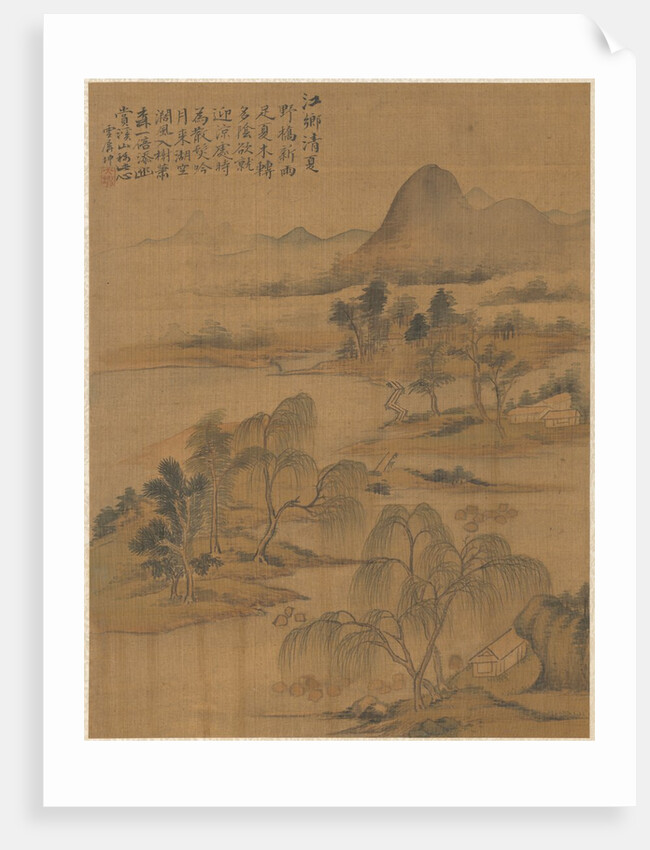 江鄉清夏
野橋新雨
足夏木轉
多陰欲就
迎涼處時
為散髮吟
月來湖空
濶風入樹蕭
森一倍添幽
賞溪山払世心
雲溪坤